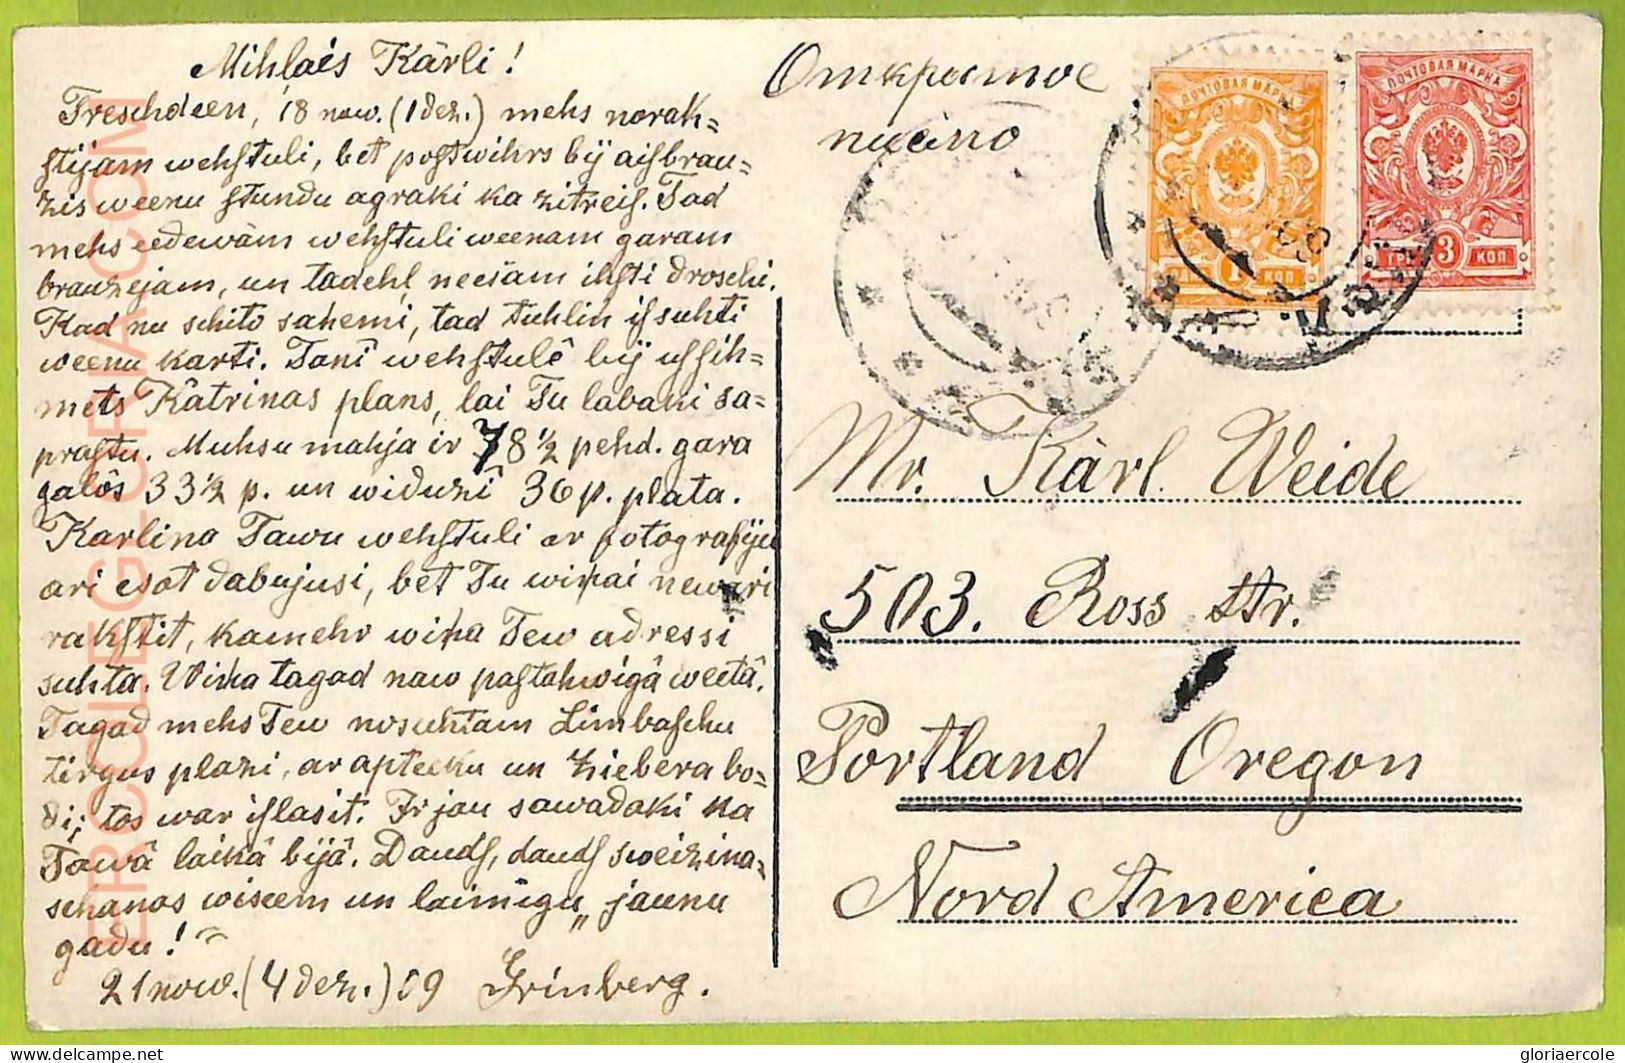 Mihlais Kārli!
Treschdeen, 18 now. (1 dez.) mehs norak=
stijam wehstuli, bet postwihrs bij aisbrau=
zis weenu stundu agraki ka zitreis. Tad
mehs eedewām wehstuli weenam garam
brauzejam, un tadehl neesam ihsti droschi.
Kad nu schito sahemi, tad tuhlin issuhti
weenu karti. Tanî wehstulê bij ussih=
mets Katrinas plans, lai Tu labaki sa=
prastu. Muhsu mahja ir 78½ pehd. gara
galôs 33½ p. un widuzî 36 p. plata.
Karlino Tawu wehstuli ar fotografiju
ari esot dabujusi, bet Tu wiņai newari
rakstit, kamehr wiņa Tew adressi
suhta. Wiņa tagad naw pastahwigâ weetâ.
Tagad mehs Tew nosuhtam Limbaschu
tirgus plazi, ar apteeku un Ziebera bo=
di; tos war islasit. Ir jau sawadaki ka
Tawâ laikâ bijâ. Dauds, dauds sweizina=
schanas wiseem un laimigu „jaunu
gadu!“
21 now. (4 dez.) 09 Grinberg.
Открытое
письмо
ПОЧТОВАЯ МАРКА
ПОЧТОВАЯ МАРКА
1 КОП
ТРИ 3 КОП
Mr. Kàrl Weide
503. Ross Str.
Portland Oregon
Nord America
ERCOLEGLORIA.COM
delcampe.net
gloriaercole